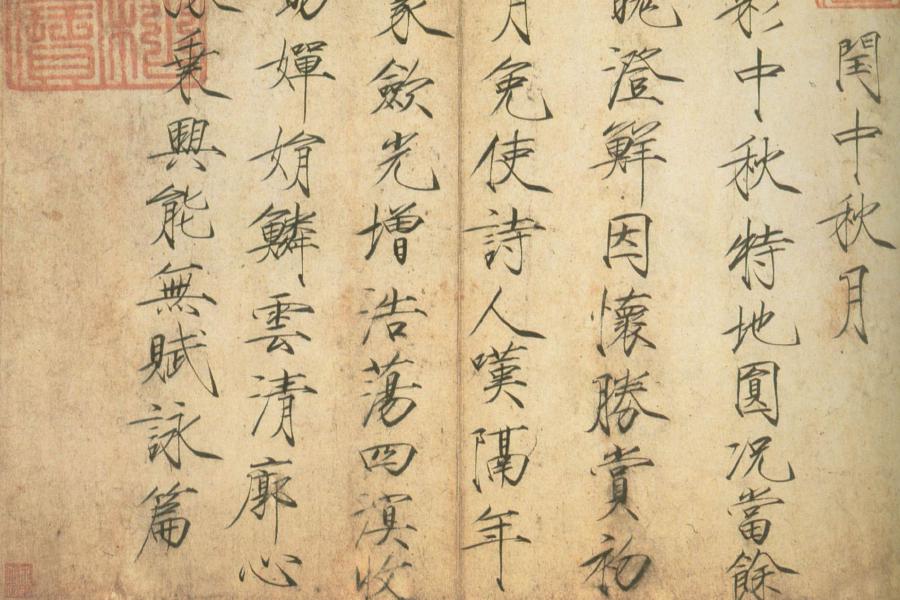 閏中秋月
彩中秋特地圓況當餘
魄澄鮮因懷勝賞初
月免使詩人嘆隔年
象歛光增浩蕩四溟收
助嬋娟鱗雲清廓心
乘興能無賦詠篇